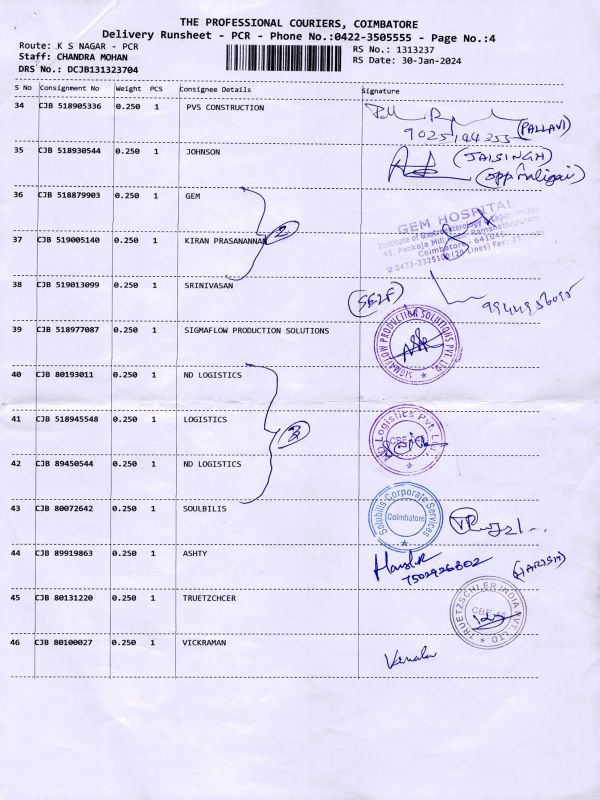 THE PROFESSIONAL COURIERS, COIMBATORE
Delivery Runsheet - PCR - Phone No.:0422-3505555 - Page No.:4
Route: K S NAGAR - PCR
RS No.: 1313237
Staff: CHANDRA MOHAN
RS Date: 30-Jan-2024
DRS No.: DCJB131323704
S No Consignment No Weight PCS Consignee Details Signature
34 CJB 518905336 0.250 1 PVS CONSTRUCTION
(PALLAVI)
35 CJB 518930544 0.250 1 JOHNSON (JAISINGH)
36 CJB 518879903 0.250 1 GEM
2
GEM HOSPITAL
Institute of Gastroenterology & Laparoscopy
45, Pankaja Mill Ramanathapuram
Coimbatore 641045
37 CJB 519005140 0.250 1 KIRAN PRASANANNAN
38 CJB 519013099 0.250 1 SRINIVASAN (SELF)
39 CJB 518977087 0.250 1 SIGMAFLOW PRODUCTION SOLUTIONS
SIGMAFLOW PRODUCTION SOLUTIONS PVT. LTD.
40 CJB 80193011 0.250 1 ND LOGISTICS
41 CJB 518945548 0.250 1 LOGISTICS
3
ND Logistics Pvt. Ltd.
CBE
42 CJB 89450544 0.250 1 ND LOGISTICS
43 CJB 80072642 0.250 1 SOULBILIS
Solubilis Corporate Services
Coimbatore
44 CJB 89919863 0.250 1 ASHTY
7502926302
(HARISH)
45 CJB 80131220 0.250 1 TRUETZCHCER
TRUETZSCHLER INDIA PVT LTD
CBE-45
46 CJB 80100027 0.250 1 VICKRAMAN